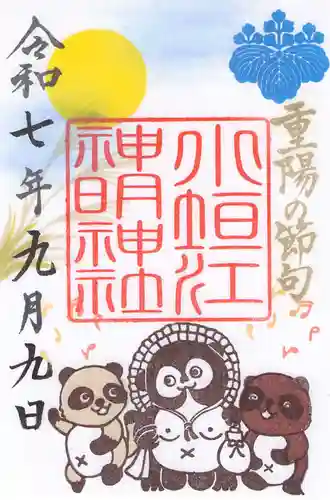 重陽の節句
小垣江
神明神社
令和七年九月九日